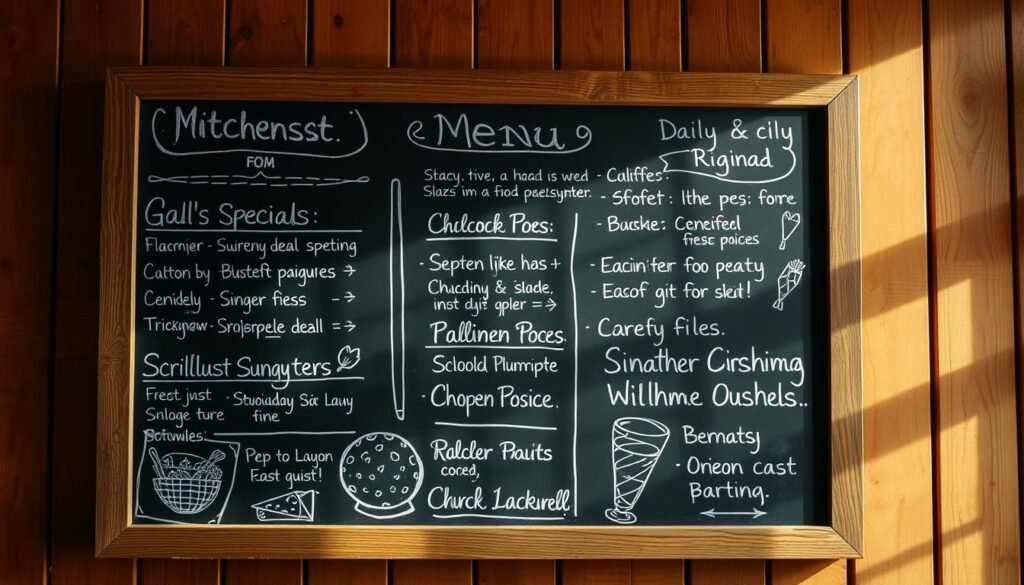 Mitchensst.
FOM
Gall's Specials:
Flacmjer - Suireny deal speting
Calton by - Busteft paigures →
Cenidely - Singer fiess - →
Trickpnaw - Srojsrpele deall =→
Scrilllust Sungyters
Frest just
Snlage ture
Sotwules:
- Stuoiaday Six Lauy
fine
Pep to Layon
East quist!
Menu
Stacy. tive, a haad is wed
Slazs im a fiod pselsynter.
Chelcock Poes:
- Septen ljke has +
Chucdiny & slade,
inst dyit gpler =→
Pallinen Poces.
Scloold Plumripte
· Chopen Posice.
Ralcler Pauits
cored,
Churck Lackurell
Daily & cily
Riginad
- Califfes:
- Sfofet : Ithe pes: forre
- Bucske: Cereifeel
fiese poices
- Eacin'fer foo peaty
- Easof git for sleit!
· Carefy files.
Sinather Cirshimg
Willhme Oushels..
Bernatsy
· Orieon cast
Barting.